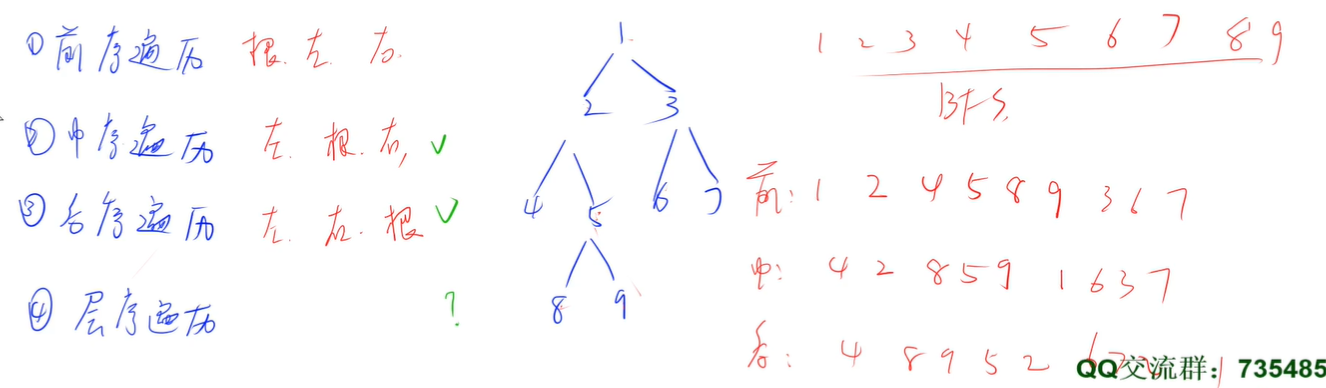 ① 前序遍历 根. 左. 右.
② 中序遍历 左. 根. 右, ✓
③ 后序遍历 左. 右. 根 ✓
④ 层序遍历 ?
1
2 3
4 5 6 7
8 9
1 2 3 4 5 6 7 8 9
BFS.
前: 1 2 4 5 8 9 3 6 7
中: 4 2 8 5 9 1 6 3 7
后: 4 8 9 5 2 6 7 1
QQ交流群: 735485